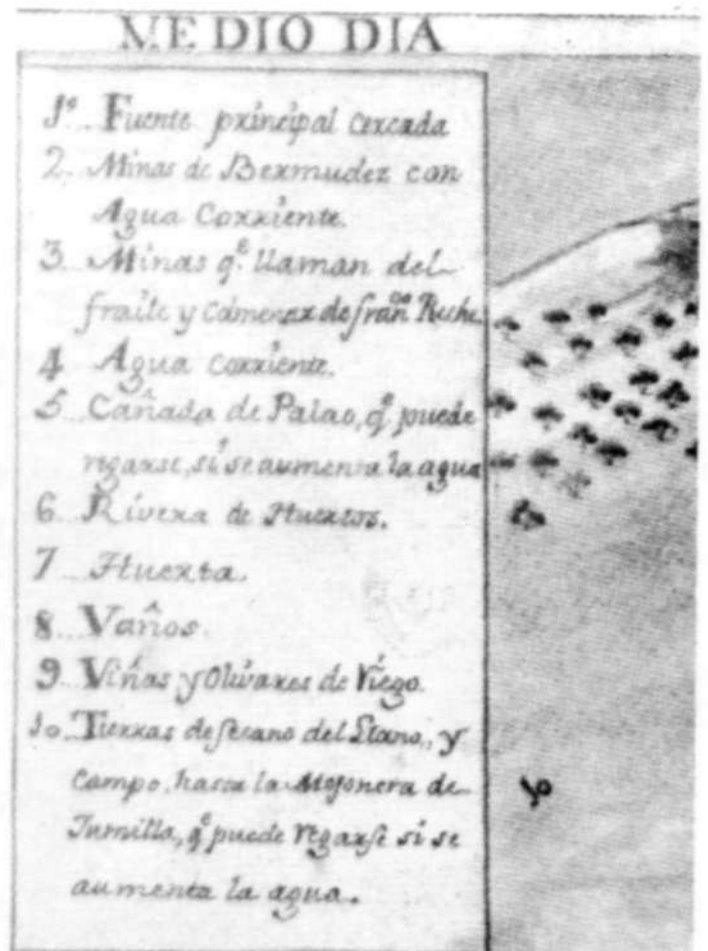 MEDIO DIA
1ª Fuente principal Cercada
2 Minas de Bermudez con
Agua Corriente.
3 Minas q.e llaman del
fraile y de fran.co
4 Agua corriente.
5 Cañada de Palao, q.e puede
regarse, si se aumenta la agua
6 Rivera de Huertos.
7 Huerta.
8 Vaños.
9 Viñas y Olivares de Riego.
10 Tierras de secano del Llano, y
Campo, hasta la Mojonera de
Jumilla, q.e puede regarse si se
aumenta la agua.
10